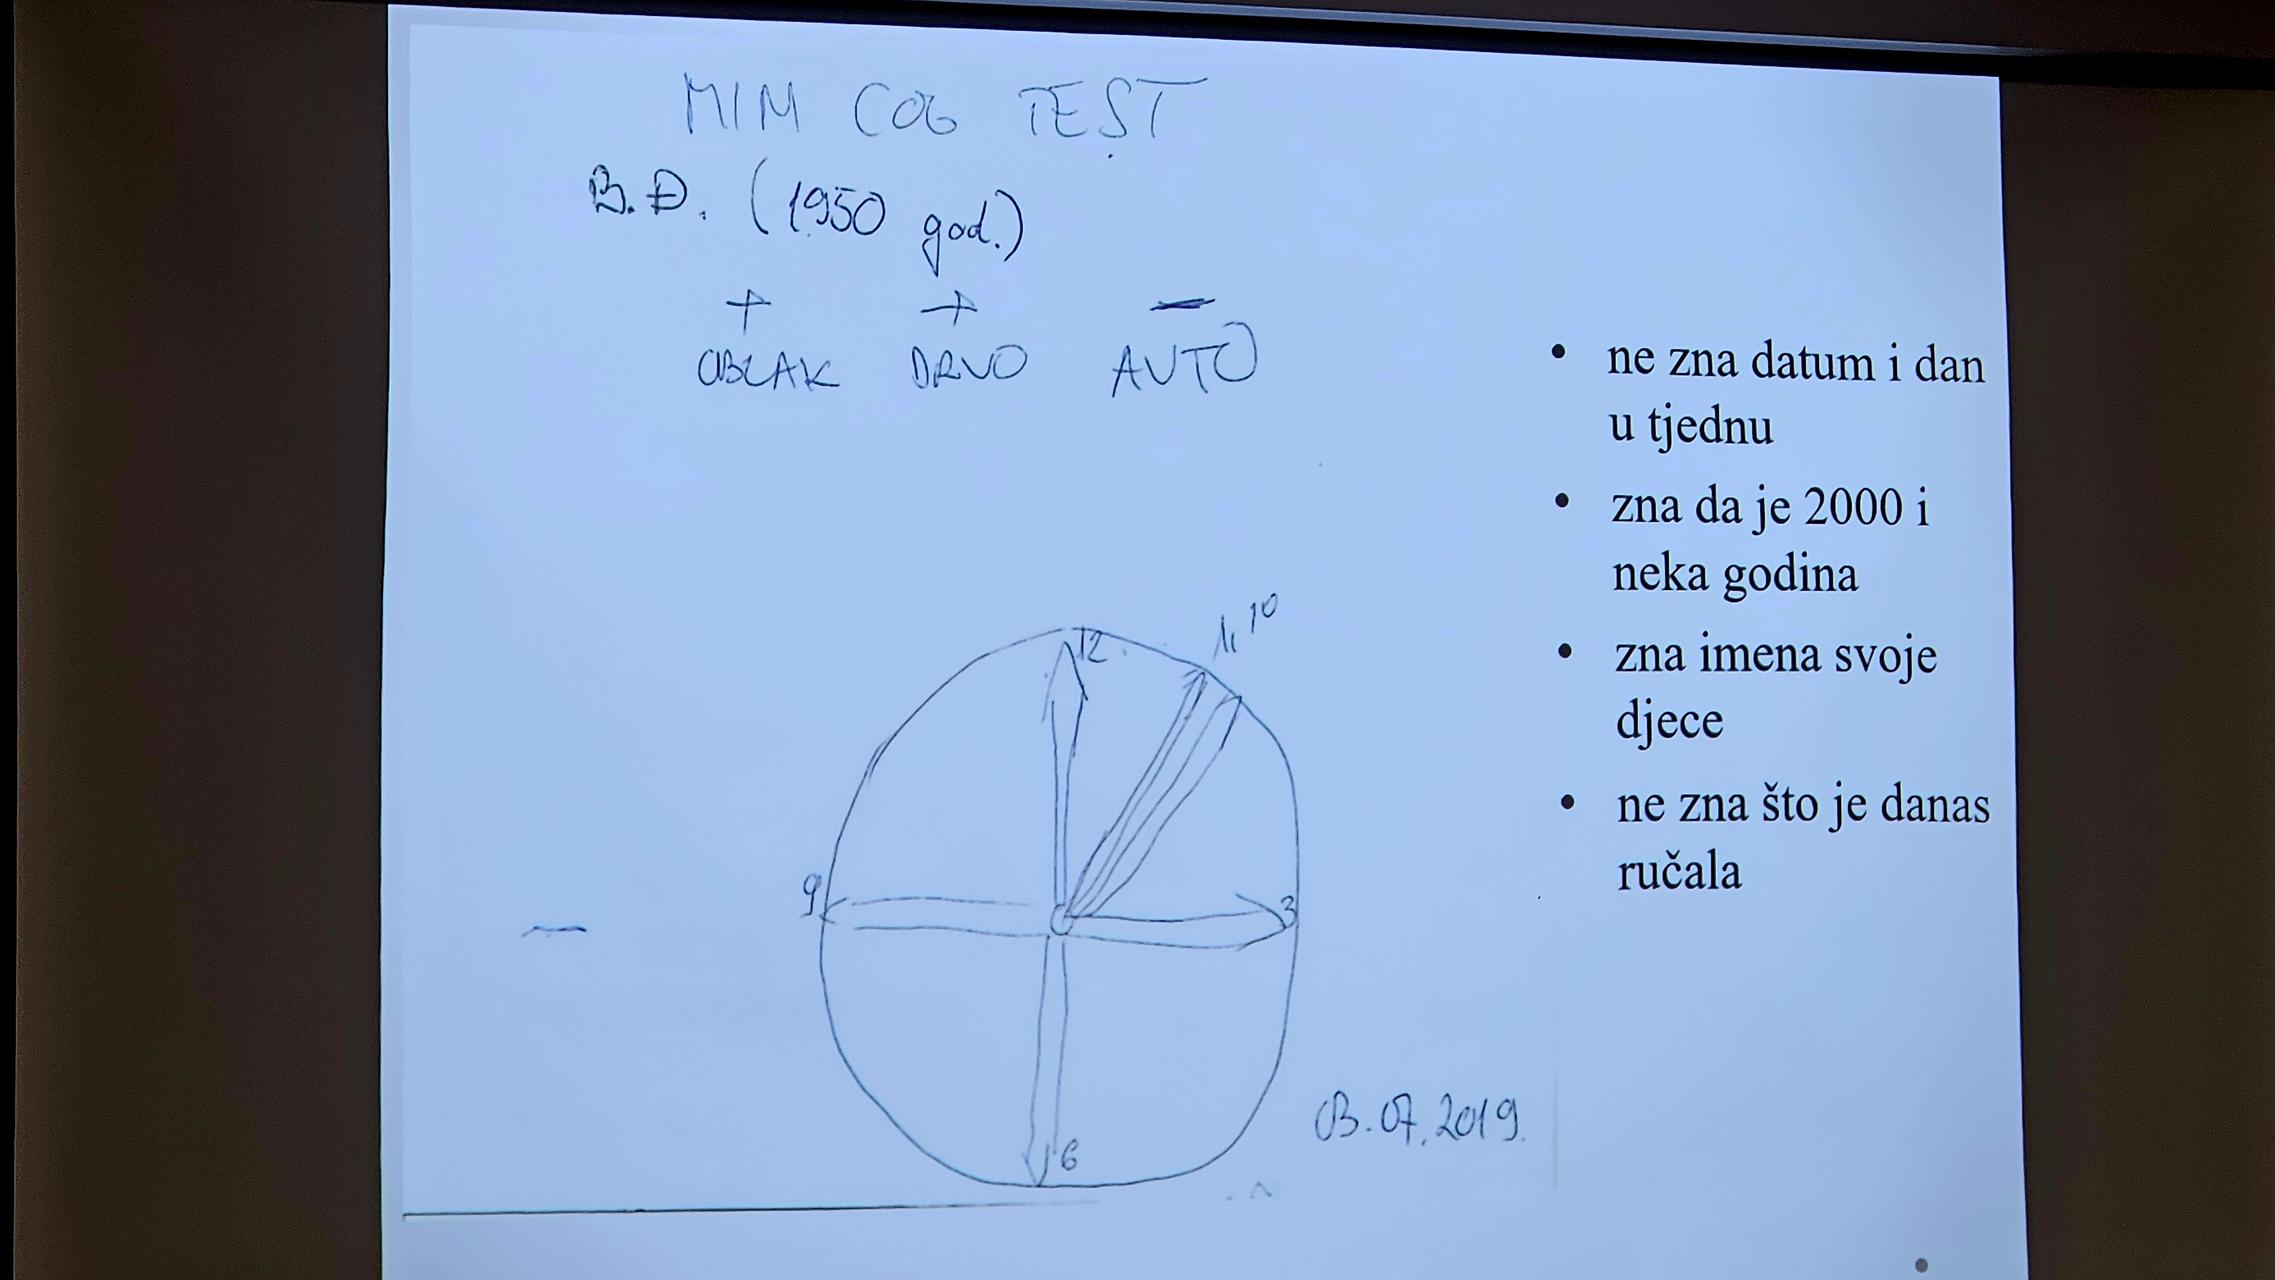 MIM COG TEST
B.Đ. (1950 god.)
+ + –
OBLAK DRVO AUTO
• ne zna datum i dan
u tjednu
• zna da je 2000 i
neka godina
• zna imena svoje
djece
• ne zna što je danas
ručala
12
1, 10
9
3
–
6
03.07.2019.